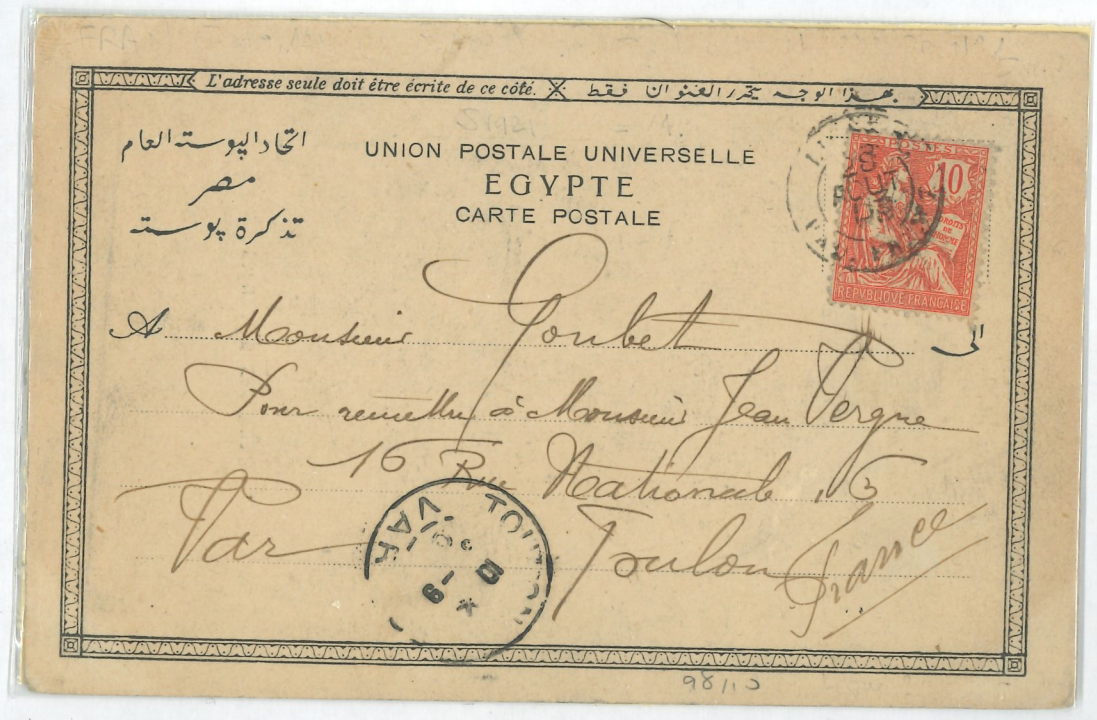 L'adresse seule doit être écrite de ce côté. بهذا الوجه يحرر العنوان فقط
اتحاد الپوستة العام
مصر
تذكرة پوستة
UNION POSTALE UNIVERSELLE
EGYPTE
CARTE POSTALE
POSTES
10
DROITS DE L'HOMME
REPVBLIQVE FRANÇAISE
AOUT
A Monsieur Goubet الى
Pour remettre à Monsieur Jean Vergne
16 Rue Nationale 16
Var Toulon
France
TOULON
VAR